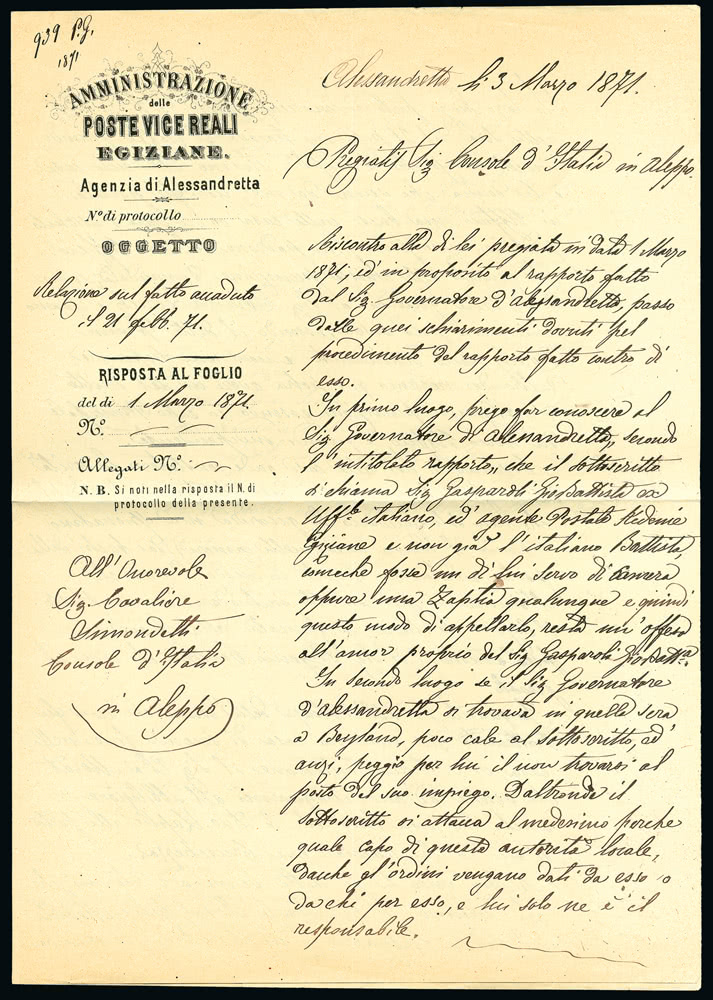 939 P.G.
1871
AMMINISTRAZIONE
delle
POSTE VICE REALI
EGIZIANE.
Agenzia di Alessandretta
N.º di protocollo
OGGETTO
Relazione sul fatto accaduto
il 21 febb. 71.
RISPOSTA AL FOGLIO
del di 1 Marzo 1871.
N.º
Allegati N.º
N.B. Si noti nella risposta il N. di
protocollo della presente.
All'Onorevole
Sig. Cavaliere
Simondetti
Console d'Italia
in Aleppo
Alessandretta li 3 Marzo 1871.
Pregiatis Sig Console d'Italia in Aleppo.
Riscontro alla di lei pregiata in data 1 Marzo
1871, ed in proposito al rapporto fatto
dal Sig. Governatore d'alessandretta, passo
darle quei schiarimenti dovuti pel
procedimento del rapporto fatto contro di
esso.
In primo luogo, prego far conoscere al
Sig Governatore di Alessandretta, secondo
l'intitolato rapporto,, che il sottoscritto
si chiama Sig Gasparoli GioBattista ex
Uff.le italiano, ed' agente Postale
Egiziane e non già l'italiano Battista,
comeche fosse un di lui servo di camera
oppure una Zaptia qualunque e quindi
questo modo di appellarlo, resta un' offesa
all'amor proprio del Sig Gasparoli GioBatta
In secondo luogo se il Sig Governatore
d'alessandretta si trovava in quella sera
a Beyland, poco cale al sottoscritto, ed'
anzi, peggio per lui il non trovarsi al
posto del suo impiego. Daltronde il
sottoscritto si attacca al medesimo perche
quale capo di questa autorità locale,
anche gl'ordini vengano dati da esso o
da chi per esso, e lui solo ne è il
responsabile.